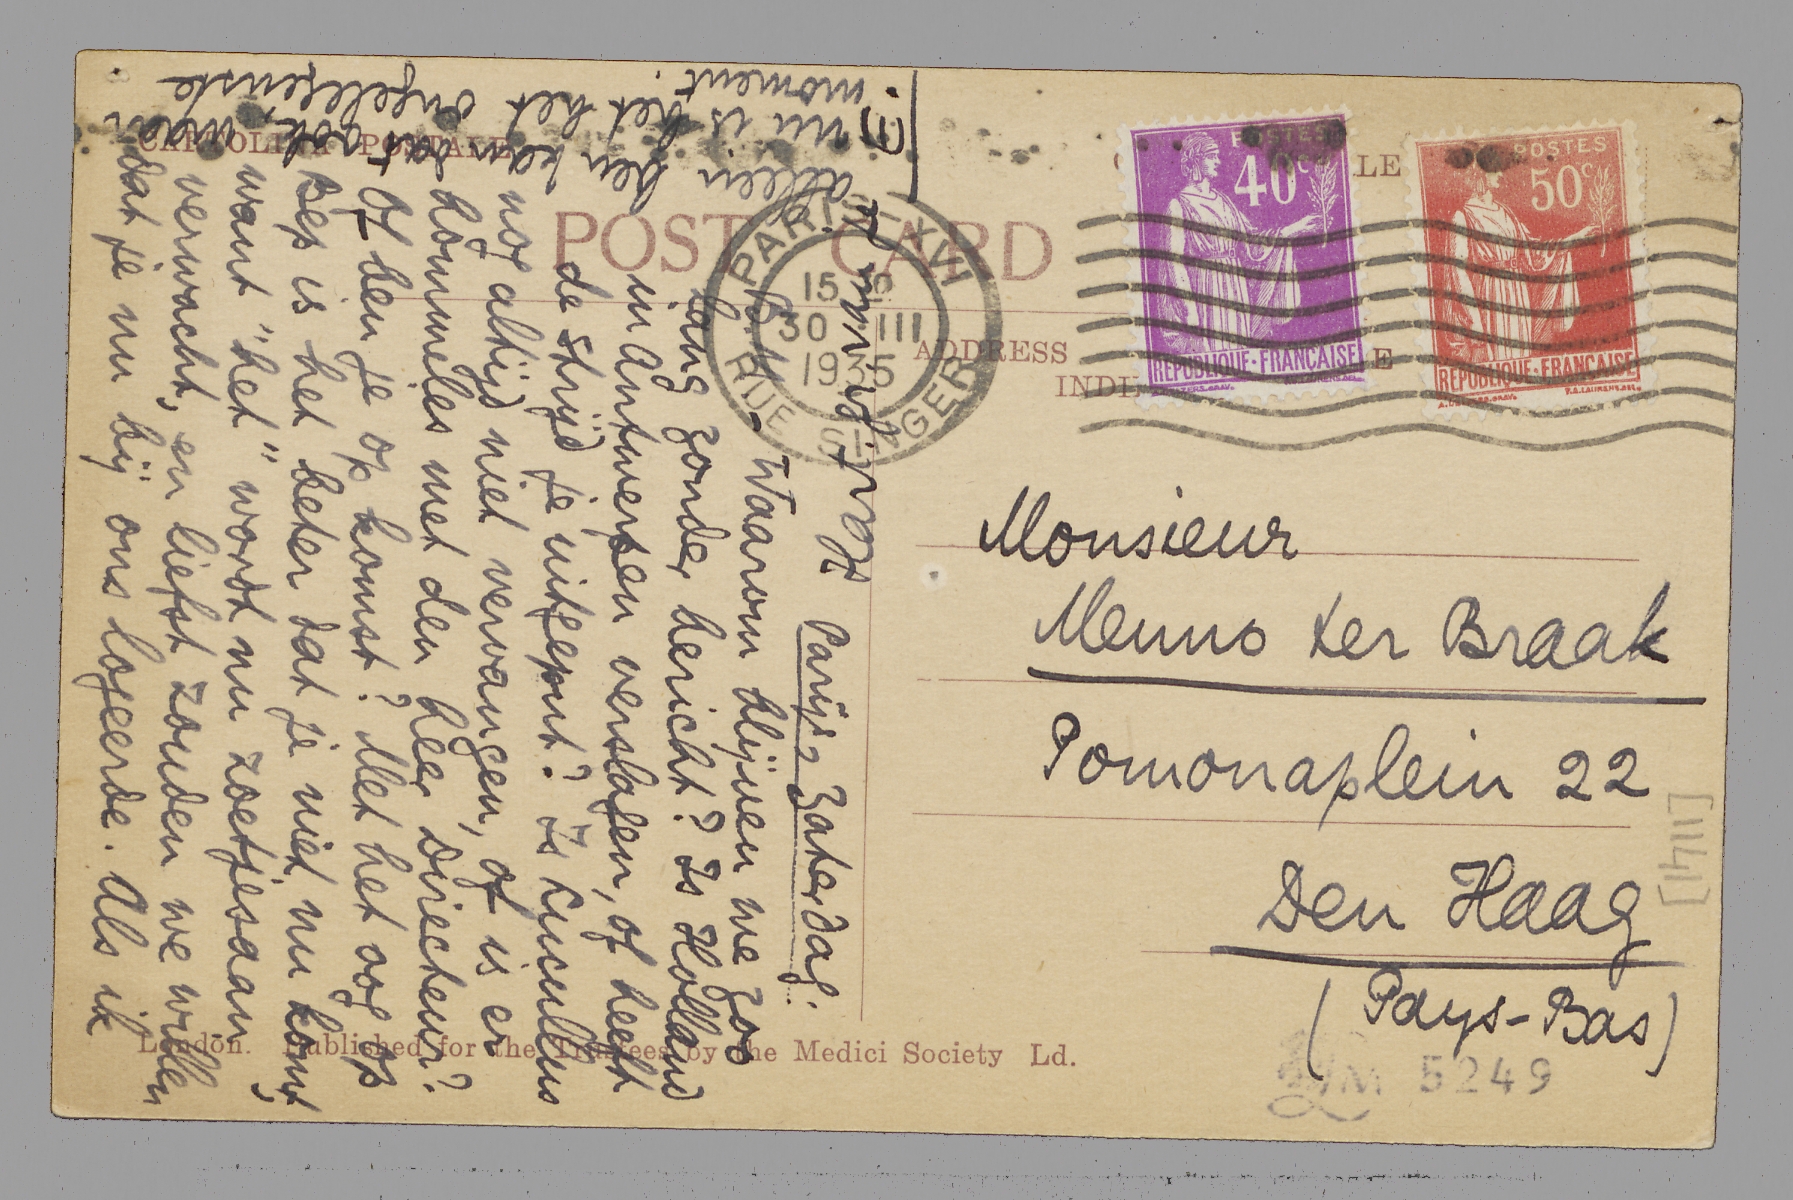 CARTOLINA POSTALE
POST CARD
ADDRESS
POSTES
40c
REPUBLIQUE·FRANÇAISE
POSTES
50c
REPUBLIQUE·FRANÇAISE
PARIS XVI
15
30 III
1935
RUE SINGER
Monsieur
Menno ter Braak
Pomonaplein 22
Den Haag
(Pays-Bas)
[1411]
LM 5249
Parijs Zaterdag.
B. M. - Waarom blijven we zoo
lang zonder bericht? Is Holland
in Antwerpen verslagen, of heeft
de strijd je uitgeput? Is Lucullus
nog altijd niet vervangen, of is er
hommeles met den heer Directeur?
Of ben je op komst? Met het oog op
Bep is het beter dat je niet nu komt,
want "het" wordt nu zoetjesaan
verwacht, en liefst zouden we willen
dat je nu bij ons logeerde. Als ik
alleen ben kan dat ook, maar
nu is het het ongelegenste
moment.
Hart. groet
E.
London. Published for the Trustees by the Medici Society Ld.